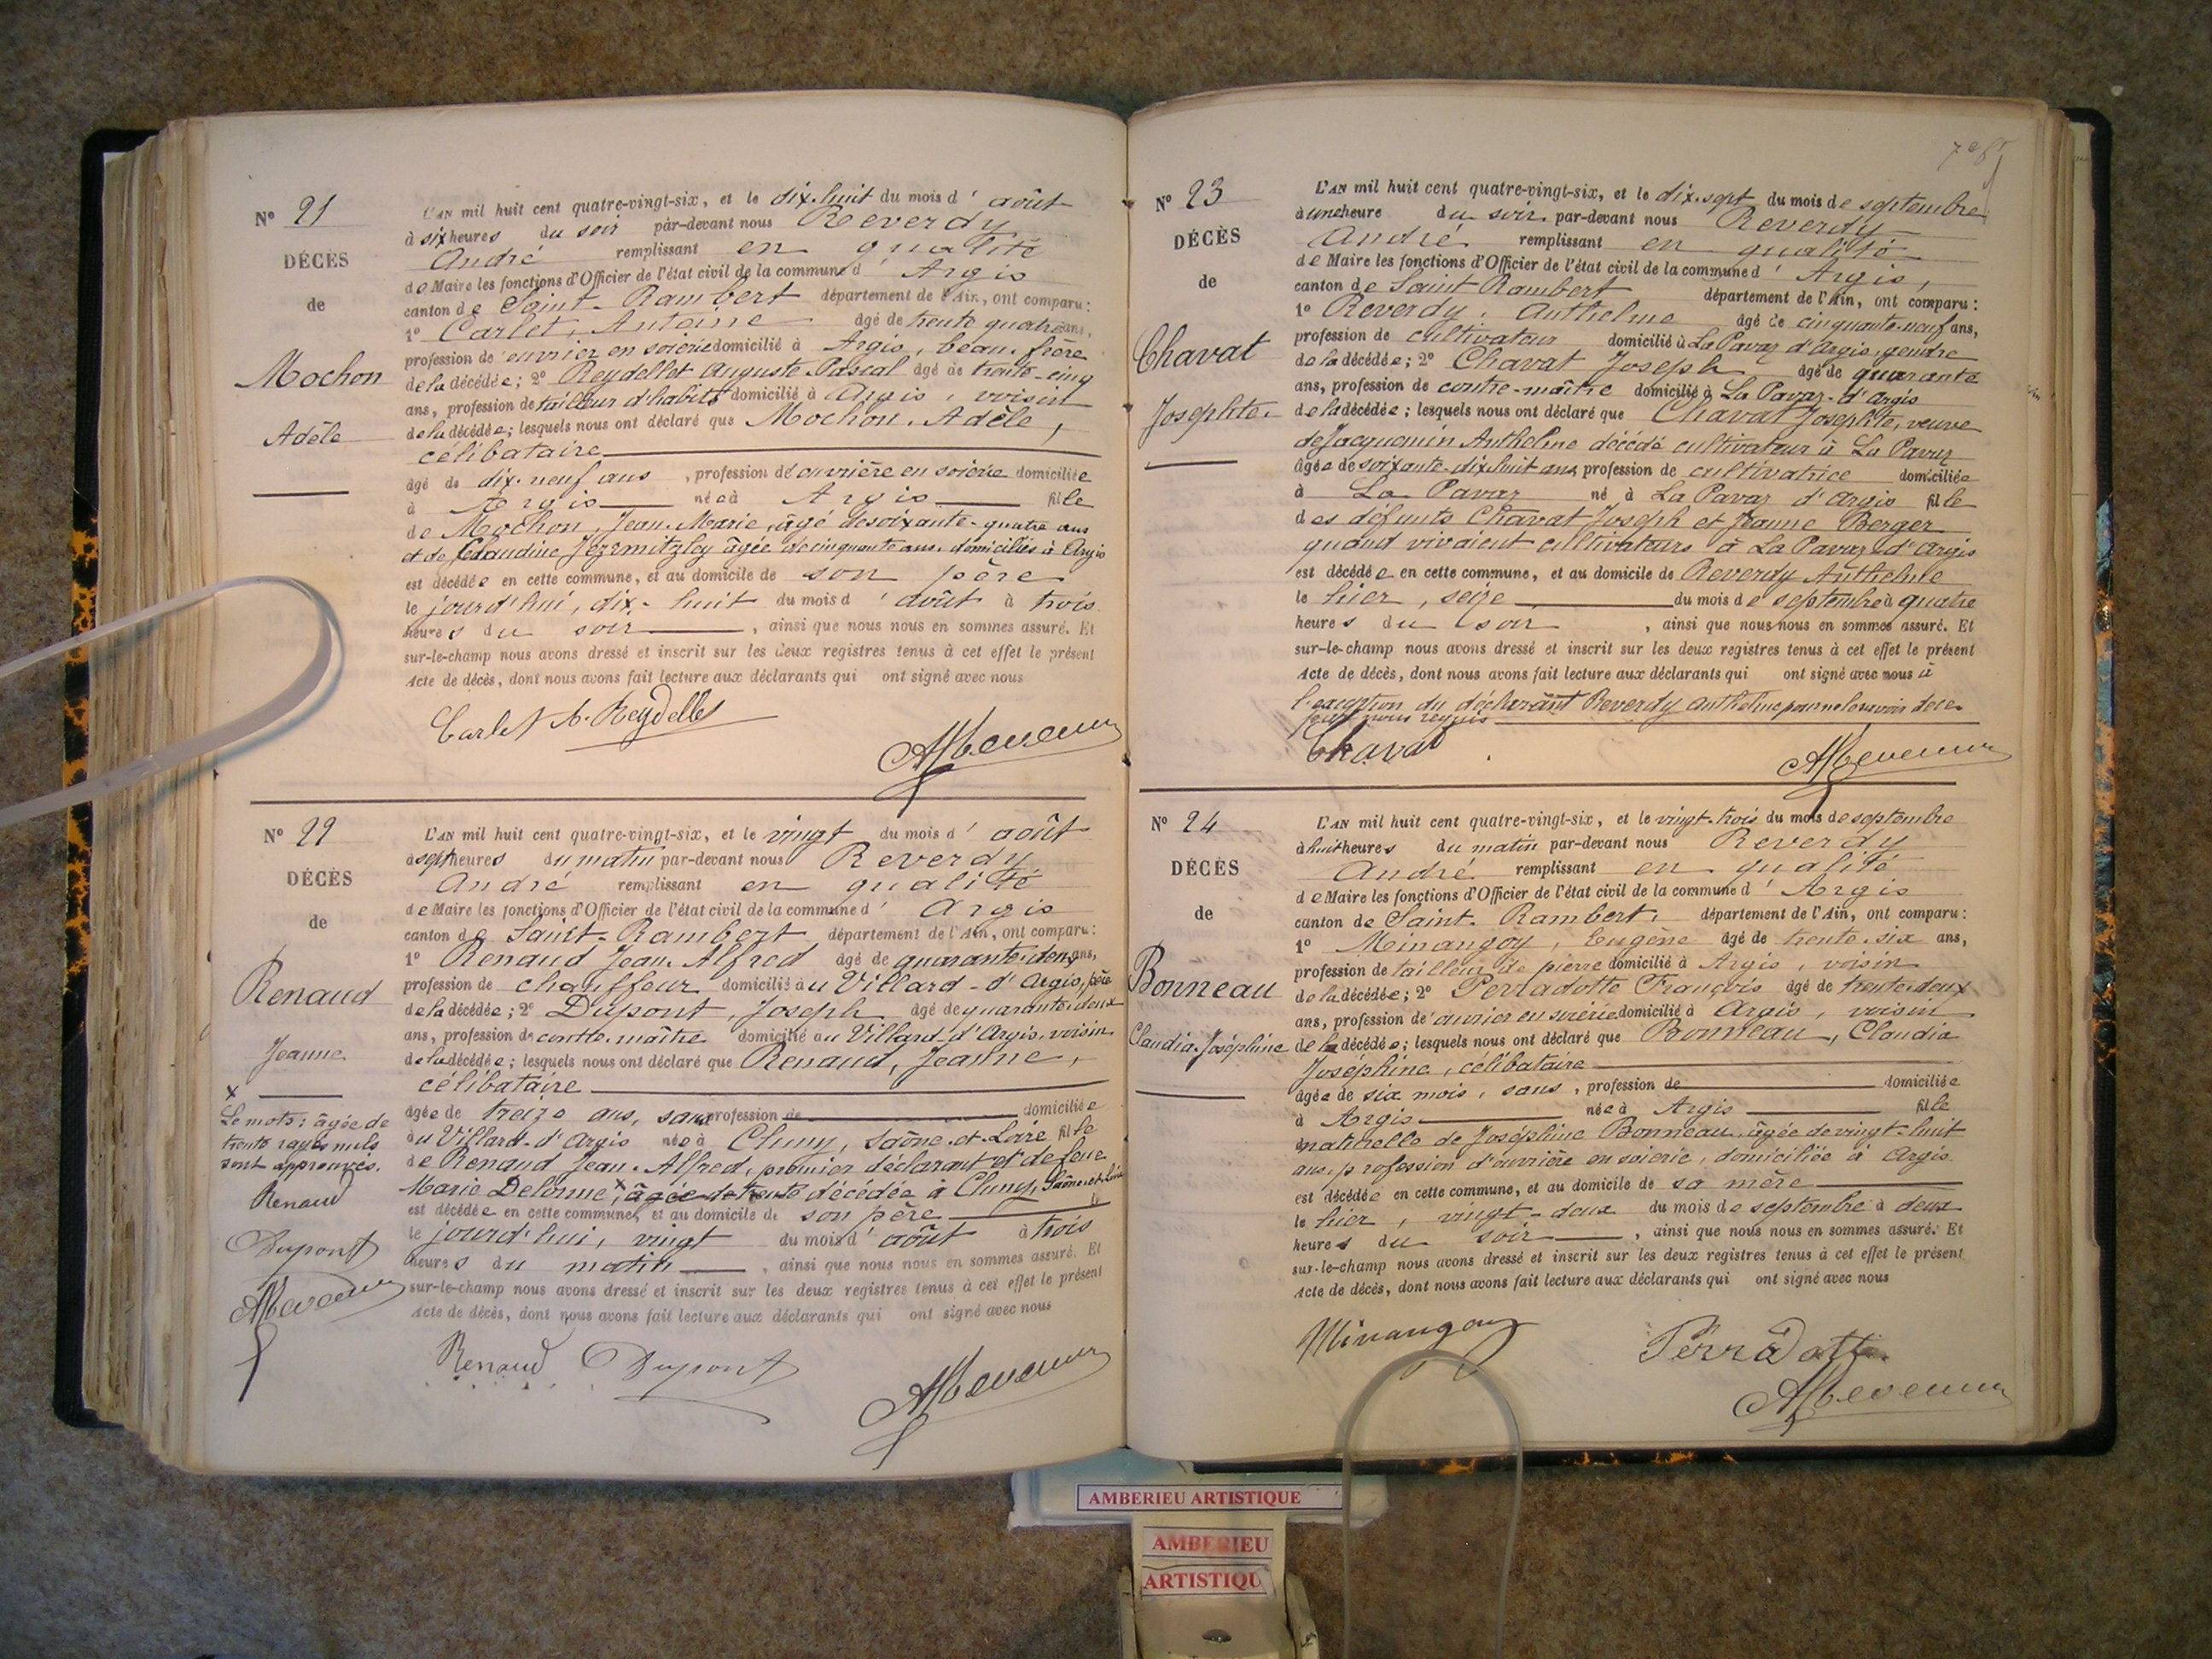 Nº 21
DÉCÈS
de
Mochon
Adèle
L'AN mil huit cent quatre-vingt-six, et le dix-huit du mois d'août
à six heures du soir par-devant nous Reverdy
André remplissant en qualité
de Maire les fonctions d'Officier de l'état civil de la commune d'Argis
canton de Saint-Rambert département de l'Ain, ont comparu :
1º Carlet, Antoine âgé de trente quatre ans,
profession de ouvrier en soierie domicilié à Argis, beau-frère
de la décédée ; 2º Reydellet Auguste Pascal âgé de trente-cinq
ans, profession de tailleur d'habits domicilié à Argis, voisin
de la décédée ; lesquels nous ont déclaré que Mochon, Adèle,
célibataire
âgé de dix-neuf ans, profession de ouvrière en soierie domiciliée
à Argis née à Argis fille
de Mochon, Jean-Marie, âgé de soixante-quatre ans
et de Claudine âgée de cinquante ans, domiciliés à Argis
est décédée en cette commune, et au domicile de son père
le jourd'hui, dix-huit du mois d'août à trois
heures du soir, ainsi que nous nous en sommes assuré. Et
sur-le-champ nous avons dressé et inscrit sur les deux registres tenus à cet effet le présent
Acte de décès, dont nous avons fait lecture aux déclarants qui ont signé avec nous
Carlet A. Reydellet
Nº 22
DÉCÈS
de
Renaud
Jeanne
x
Le mots : âgée de
trente rayés nuls
sont approuvés.
Renaud
Dupont
L'AN mil huit cent quatre-vingt-six, et le vingt du mois d'août
à sept heures du matin par-devant nous Reverdy
André remplissant en qualité
de Maire les fonctions d'Officier de l'état civil de la commune d'Argis
canton de Saint-Rambert département de l'Ain, ont comparu :
1º Renaud Jean-Alfred âgé de quarante-deux ans,
profession de chauffeur domicilié au Villard-d'Argis, père
de la décédée ; 2º Dupont, Joseph âgé de quarante-deux
ans, profession de contre-maître domicilié au Villard-d'Argis, voisin
de la décédée ; lesquels nous ont déclaré que Renaud, Jeanne,
célibataire
âgée de treize ans, sans profession de domiciliée
au Villard-d'Argis née à Cluny, Saône-et-Loire fille
de Renaud Jean-Alfred, premier déclarant et de feue
Marie Delorme, x âgée de trente décédée à Cluny, Saône-et-Loire
est décédée en cette commune, et au domicile de son père
le jourd'hui, vingt du mois d'août à trois
heures du matin, ainsi que nous nous en sommes assuré. Et
sur-le-champ nous avons dressé et inscrit sur les deux registres tenus à cet effet le présent
Acte de décès, dont nous avons fait lecture aux déclarants qui ont signé avec nous
Renaud Dupont
Nº 23
DÉCÈS
de
Chavat
Josephte
L'AN mil huit cent quatre-vingt-six, et le dix-sept du mois de septembre
à une heure du soir par-devant nous Reverdy
André remplissant en qualité
de Maire les fonctions d'Officier de l'état civil de la commune d'Argis,
canton de Saint Rambert département de l'Ain, ont comparu :
1º Reverdy, Anthelme âgé de cinquante-neuf ans,
profession de cultivateur domicilié à La Pavaz d'Argis, gendre
de la décédée ; 2º Chavat Joseph âgé de quarante
ans, profession de contre-maître domicilié à La Pavaz-d'Argis
de la décédée ; lesquels nous ont déclaré que Chavat Josephte, veuve
de Jacquemin Anthelme décédé cultivateur à La Pavaz
âgée de soixante-dix-huit ans, profession de cultivatrice domiciliée
à La Pavaz né à La Pavaz d'Argis fille
des défunts Chavat Joseph et Jeanne Berger
quand vivaient cultivateurs à La Pavaz d'Argis
est décédée en cette commune, et au domicile de Reverdy Anthelme
le hier, seize du mois de septembre à quatre
heures du soir, ainsi que nous nous en sommes assuré. Et
sur-le-champ nous avons dressé et inscrit sur les deux registres tenus à cet effet le présent
Acte de décès, dont nous avons fait lecture aux déclarants qui ont signé avec nous à
l'exception du déclarant Reverdy Anthelme pour ne le savoir de ce
par nous requis
Chavat
Nº 24
DÉCÈS
de
Bonneau
Claudia-Joséphine
L'AN mil huit cent quatre-vingt-six, et le vingt-trois du mois de septembre
à huit heures du matin par-devant nous Reverdy
André remplissant en qualité
de Maire les fonctions d'Officier de l'état civil de la commune d'Argis
canton de Saint-Rambert, département de l'Ain, ont comparu :
1º Minangoy, Eugène âgé de trente-six ans,
profession de tailleur de pierre domicilié à Argis, voisin
de la décédée ; 2º Perradotte François âgé de trente-deux
ans, profession d'ouvrier en soierie domicilié à Argis, voisin
de la décédée ; lesquels nous ont déclaré que Bonneau, Claudia
Joséphine, célibataire
âgée de six mois, sans, profession de domiciliée
à Argis née à Argis fille
naturelle de Joséphine Bonneau, âgée de vingt-huit
ans, profession d'ouvrière en soierie, domiciliée à Argis
est décédée en cette commune, et au domicile de sa mère
le hier, vingt-deux du mois de septembre à deux
heures du soir, ainsi que nous nous en sommes assuré. Et
sur-le-champ nous avons dressé et inscrit sur les deux registres tenus à cet effet le présent
Acte de décès, dont nous avons fait lecture aux déclarants qui ont signé avec nous
Minangoy
Perradotte
AMBERIEU ARTISTIQUE
AMBERIEU
ARTISTIQU